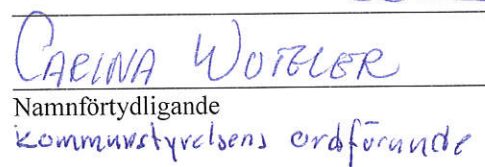 CARINA WUTZLER
Namnförtydligande
kommunstyrelsens ordförande